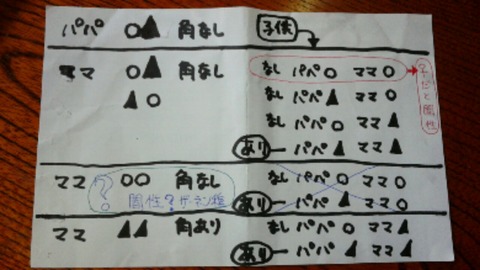 パパ ○▲ 角なし 子供
ママ ○▲ 角なし なし パパ○ ママ○
▲○ なし パパ▲ ママ○
なし パパ○ ママ▲
あり パパ▲ ママ▲
ママ ○○ 角なし なし パパ○ ママ○
? 間性? ザーネン種 あり パパ▲ ママ○
ママ ▲▲ 角あり なし パパ○ ママ▲
あり パパ▲ ママ▲
だと間性